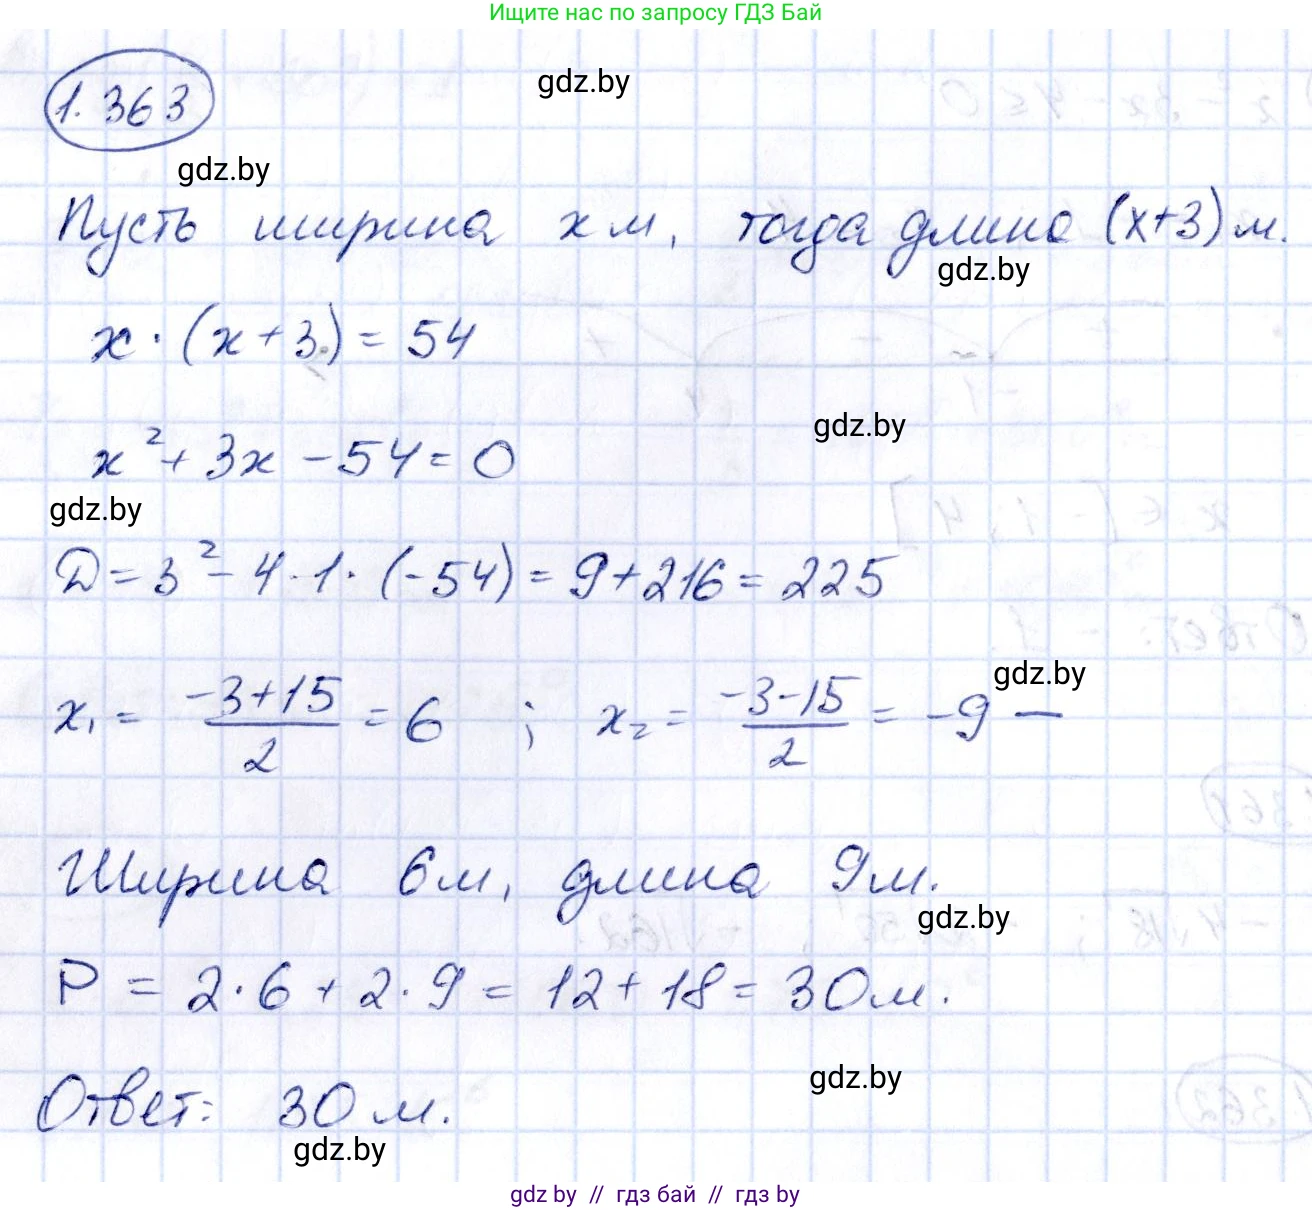 Ищите нас по запросу ГДЗ Бай
gdz.by
1.363
gdz.by
Пусть ширина x м, тогда длина (x+3) м.
gdz.by
x · (x+3) = 54
gdz.by
x² + 3x - 54 = 0
gdz.by
D = 3² - 4 · 1 · (-54) = 9 + 216 = 225
gdz.by
x₁ = (-3+15)/2 = 6 ; x₂ = (-3-15)/2 = -9 —
Ширина 6 м, длина 9 м.
gdz.by
P = 2 · 6 + 2 · 9 = 12 + 18 = 30 м.
gdz.by
Ответ: 30 м.
gdz.by
gdz by // гдз бай // гдз by